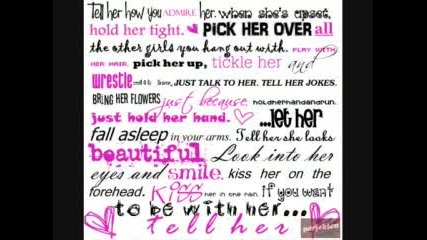 Tell her how you ADMIRE her. when she's upset,
hold her tight. PICK HER OVER all
the other girls you hang out with. PLAY WITH
HER HAIR. pick her up, tickle her and
wrestle her, JUST TALK TO HER. TELL HER JOKES.
BRING HER FLOWERS just because. hold her hand and run.
just hold her hand. ...let her
fall asleep in your arms. Tell her she looks
beautiful. Look into her
eyes and smile. kiss her on the
forehead. Kiss her in the rain. if you want
to be with her...
tell her